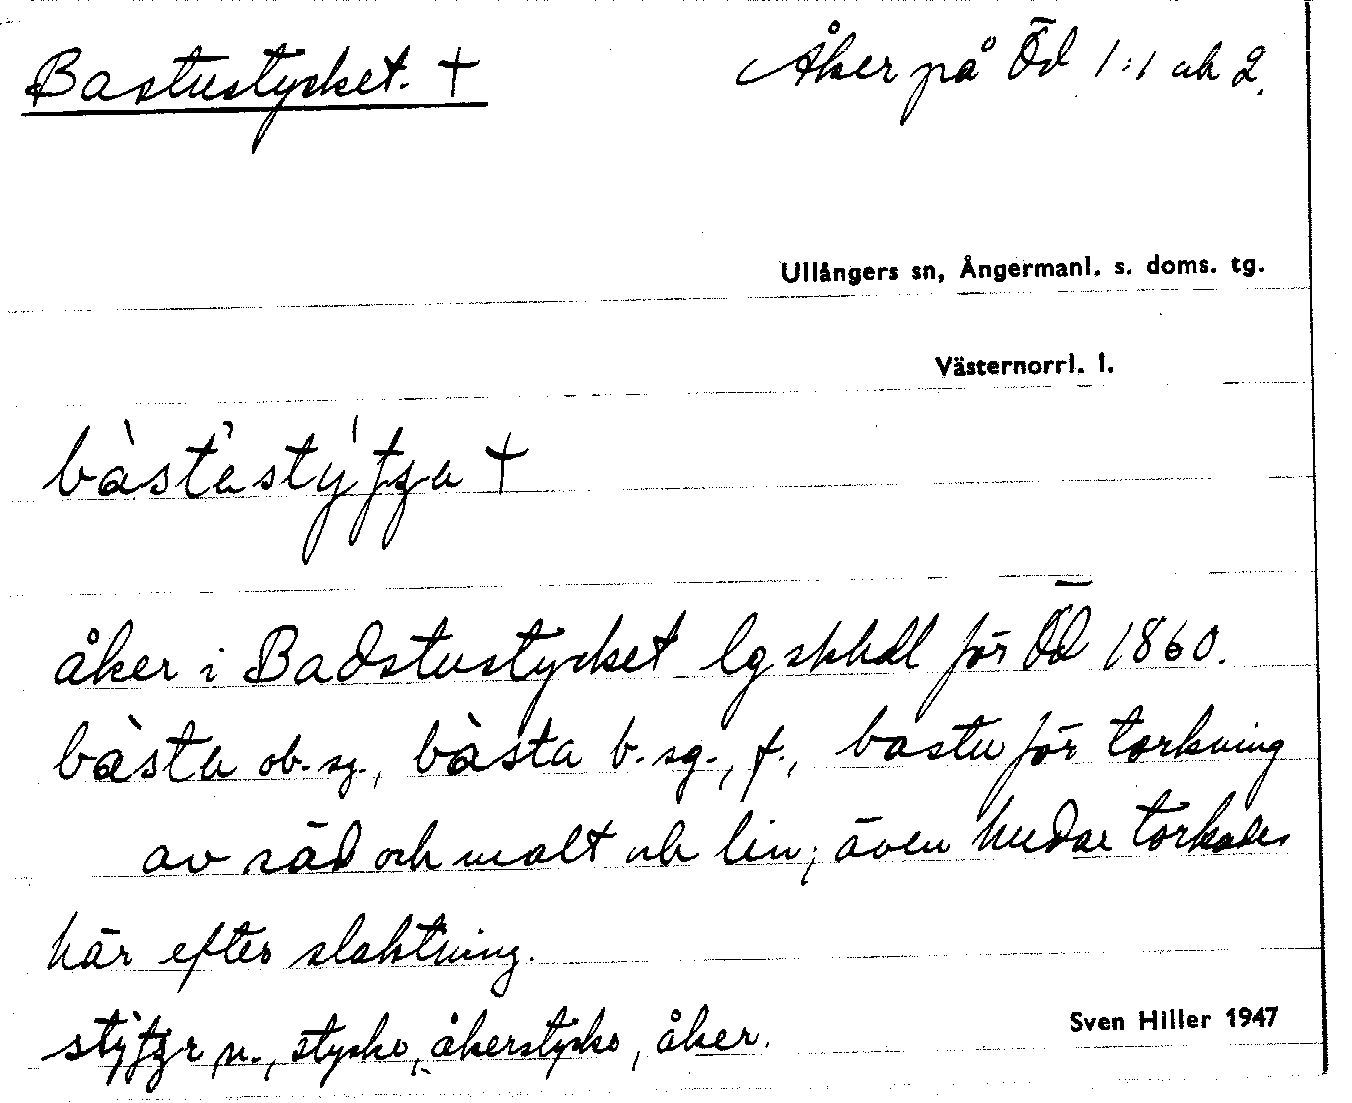 Bastustycket. †
Åker på Öd 1:1 och 2.
Ullångers sn, Ångermanl. s. doms. tg.
Västernorrl. l.
åker i Badstustycket lgskhdl för Öd 1860.
bàsta ob. sg., bàsta b. sg., f., bastu för torkning
av säd och malt och lin; även hudar torkades
här efter slaktning.
n., stycke, åkerstycke, åker.
Sven Hiller 1947